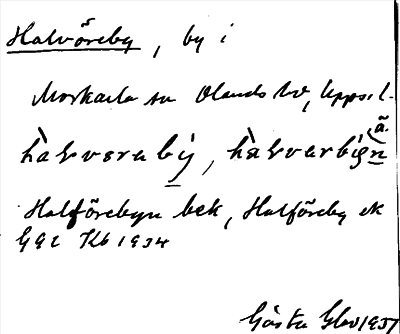 Halvöreby, by i
Morkarla sn Olands hd, Upps. l.
hàlvѳrabý, hàlvѳrbyn
Halförebyn bek, Halföreby ek
G92 Kb 1934
Gösta 1951